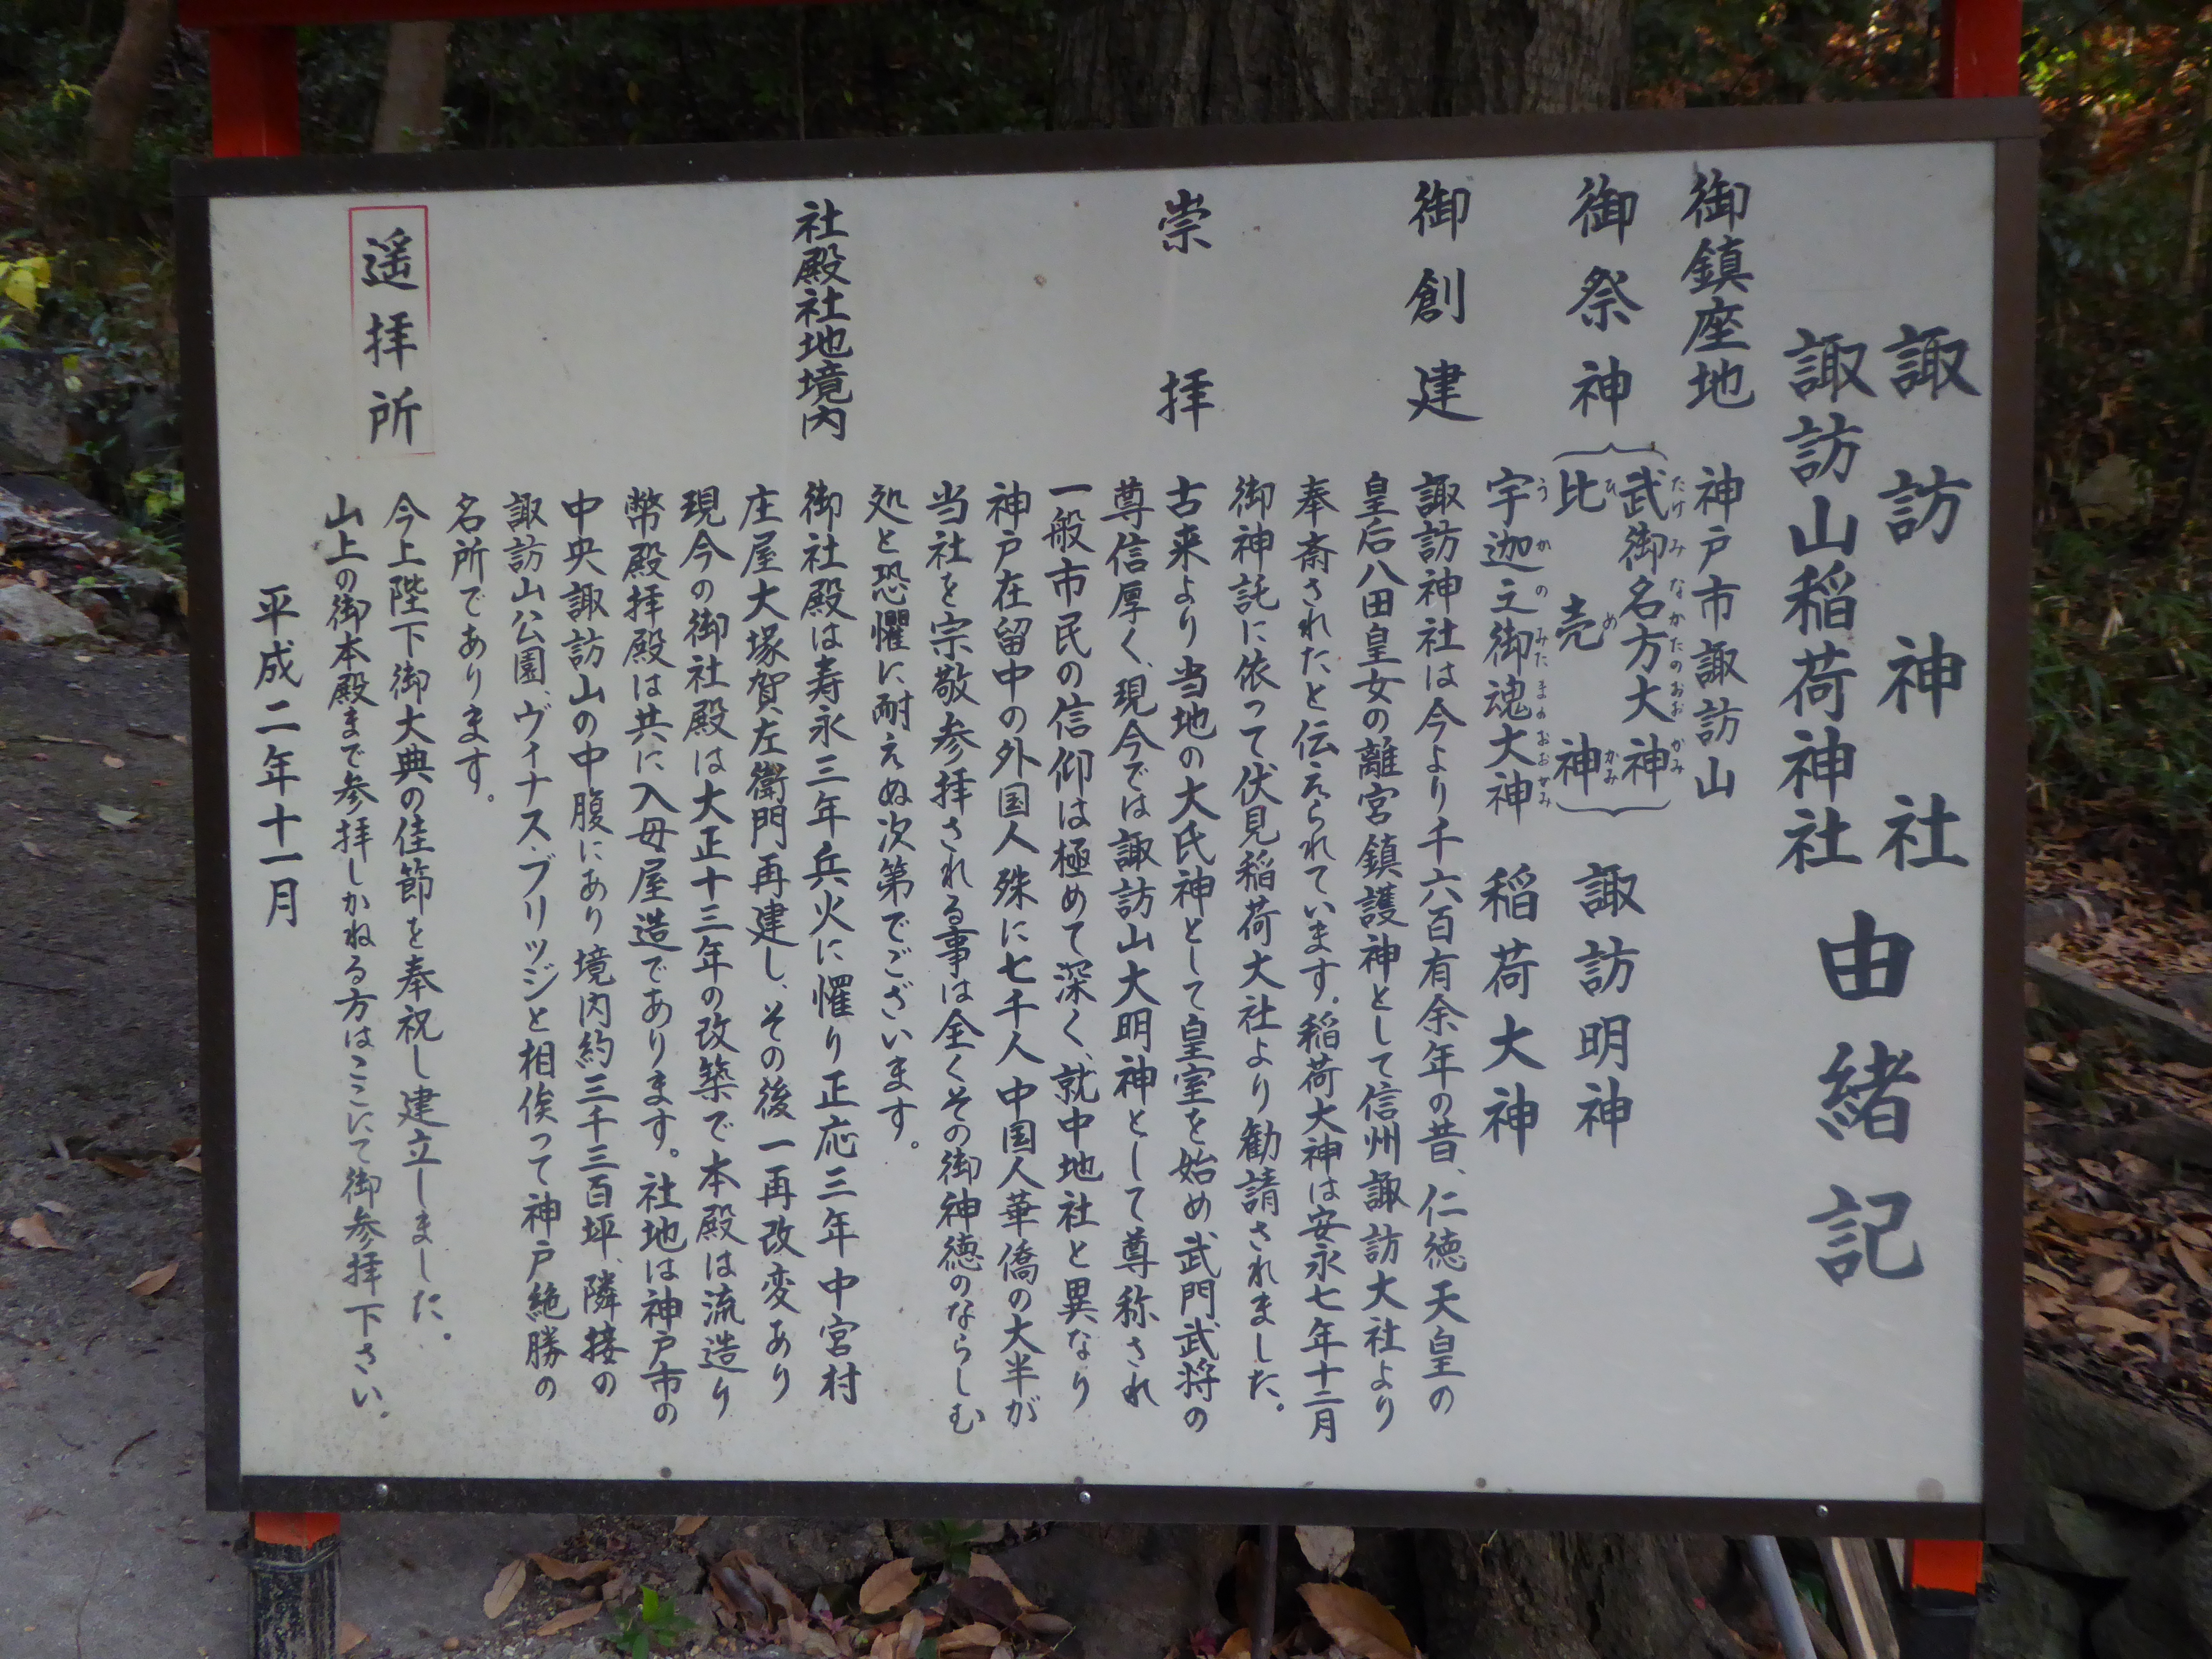 諏訪神社
諏訪山稲荷神社
由緒記
御鎮座地 神戸市諏訪山
御祭神 武御名方大神
たけみなかたのおおかみ
比売神
ひめかみ
諏訪明神
宇迦之御魂大神 稲荷大神
うかのみたまのおおかみ
御創建 諏訪神社は今より千六百有余年の昔、仁徳天皇の
皇后八田皇女の離宮鎮護神として信州諏訪大社より
奉斎されたと伝えられています。稲荷大神は安永七年十二月
御神託に依って伏見稲荷大社より勧請されました。
崇拝 古来より当地の大氏神として皇室を始め武門武将の
尊信厚く、現今では諏訪山大明神として尊称され
一般市民の信仰は極めて深く、就中地社と異なり
神戸在留中の外国人殊に七千人中国人華僑の大半が
当社を宗敬参拝される事は全くその御神徳のならしむ
処と恐懼に耐えぬ次第でございます。
社殿社地境内 御社殿は寿永三年兵火に罹り正応三年中宮村
庄屋大塚賀左衛門再建し、その後一再改変あり
現今の御社殿は大正十三年の改築で本殿は流造り
幣殿拝殿は共に入母屋造であります。社地は神戸市の
中央諏訪山の中腹にあり境内約三千三百坪、隣接の
諏訪山公園、ヴィナス・ブリッジと相俟って神戸絶勝の
名所であります。
遥拝所 今上陛下御大典の佳節を奉祝し建立しました。
山上の御本殿まで参拝しかねる方はここにて御参拝下さい。
平成二年十一月